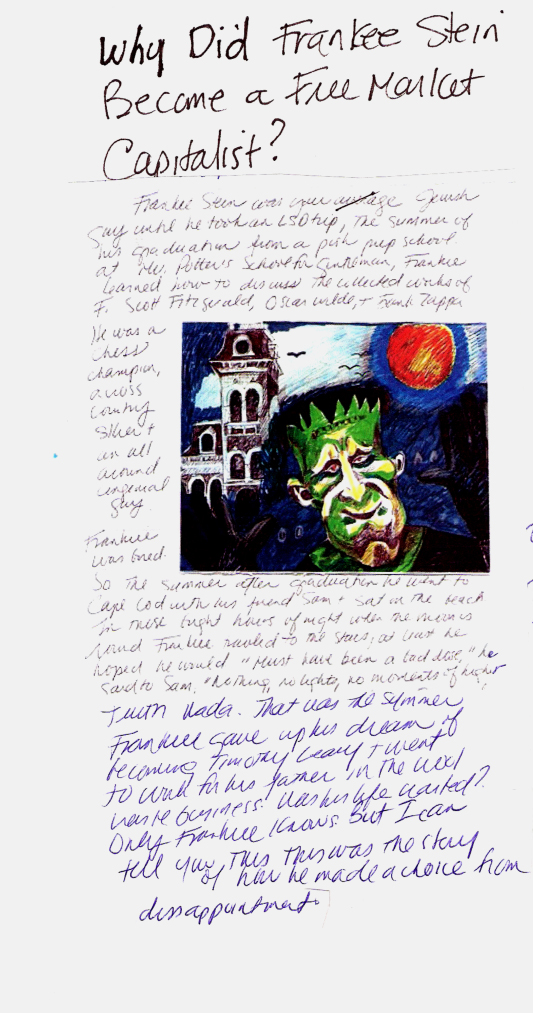 Why Did Frankee Stein
Become a Free Market
Capitalist?
Frankie Stein was your average Jewish
Guy until he took an LSD trip, the summer of
his graduation from a posh prep school.
at Mr. Potter's School for Gentleman, Frankie
learned how to discuss the collected works of
F. Scott Fitzgerald, Oscar Wilde, + Frank Zappa
He was a
chess
champion,
across
country
skier +
an all
around
congenial
guy.
Frankie
was bored.
So the summer after graduation he went to
Cape Cod with his friend Sam + sat on the beach
in those bright hours of night when the moon is
round Frankie traveled to the stars, at least he
hoped he would "Must have been a bad dose," he
said to Sam. "Nothing, no lights, no moments of higher
Truth Nada. That was the summer
Frankie gave up his dream of
becoming Timothy Leary + went
to work for his father in the
waste business. Was his life wasted?
Only Frankie Knows But I can
tell you, This This was the story
of how he made a choice from
dissappointment.